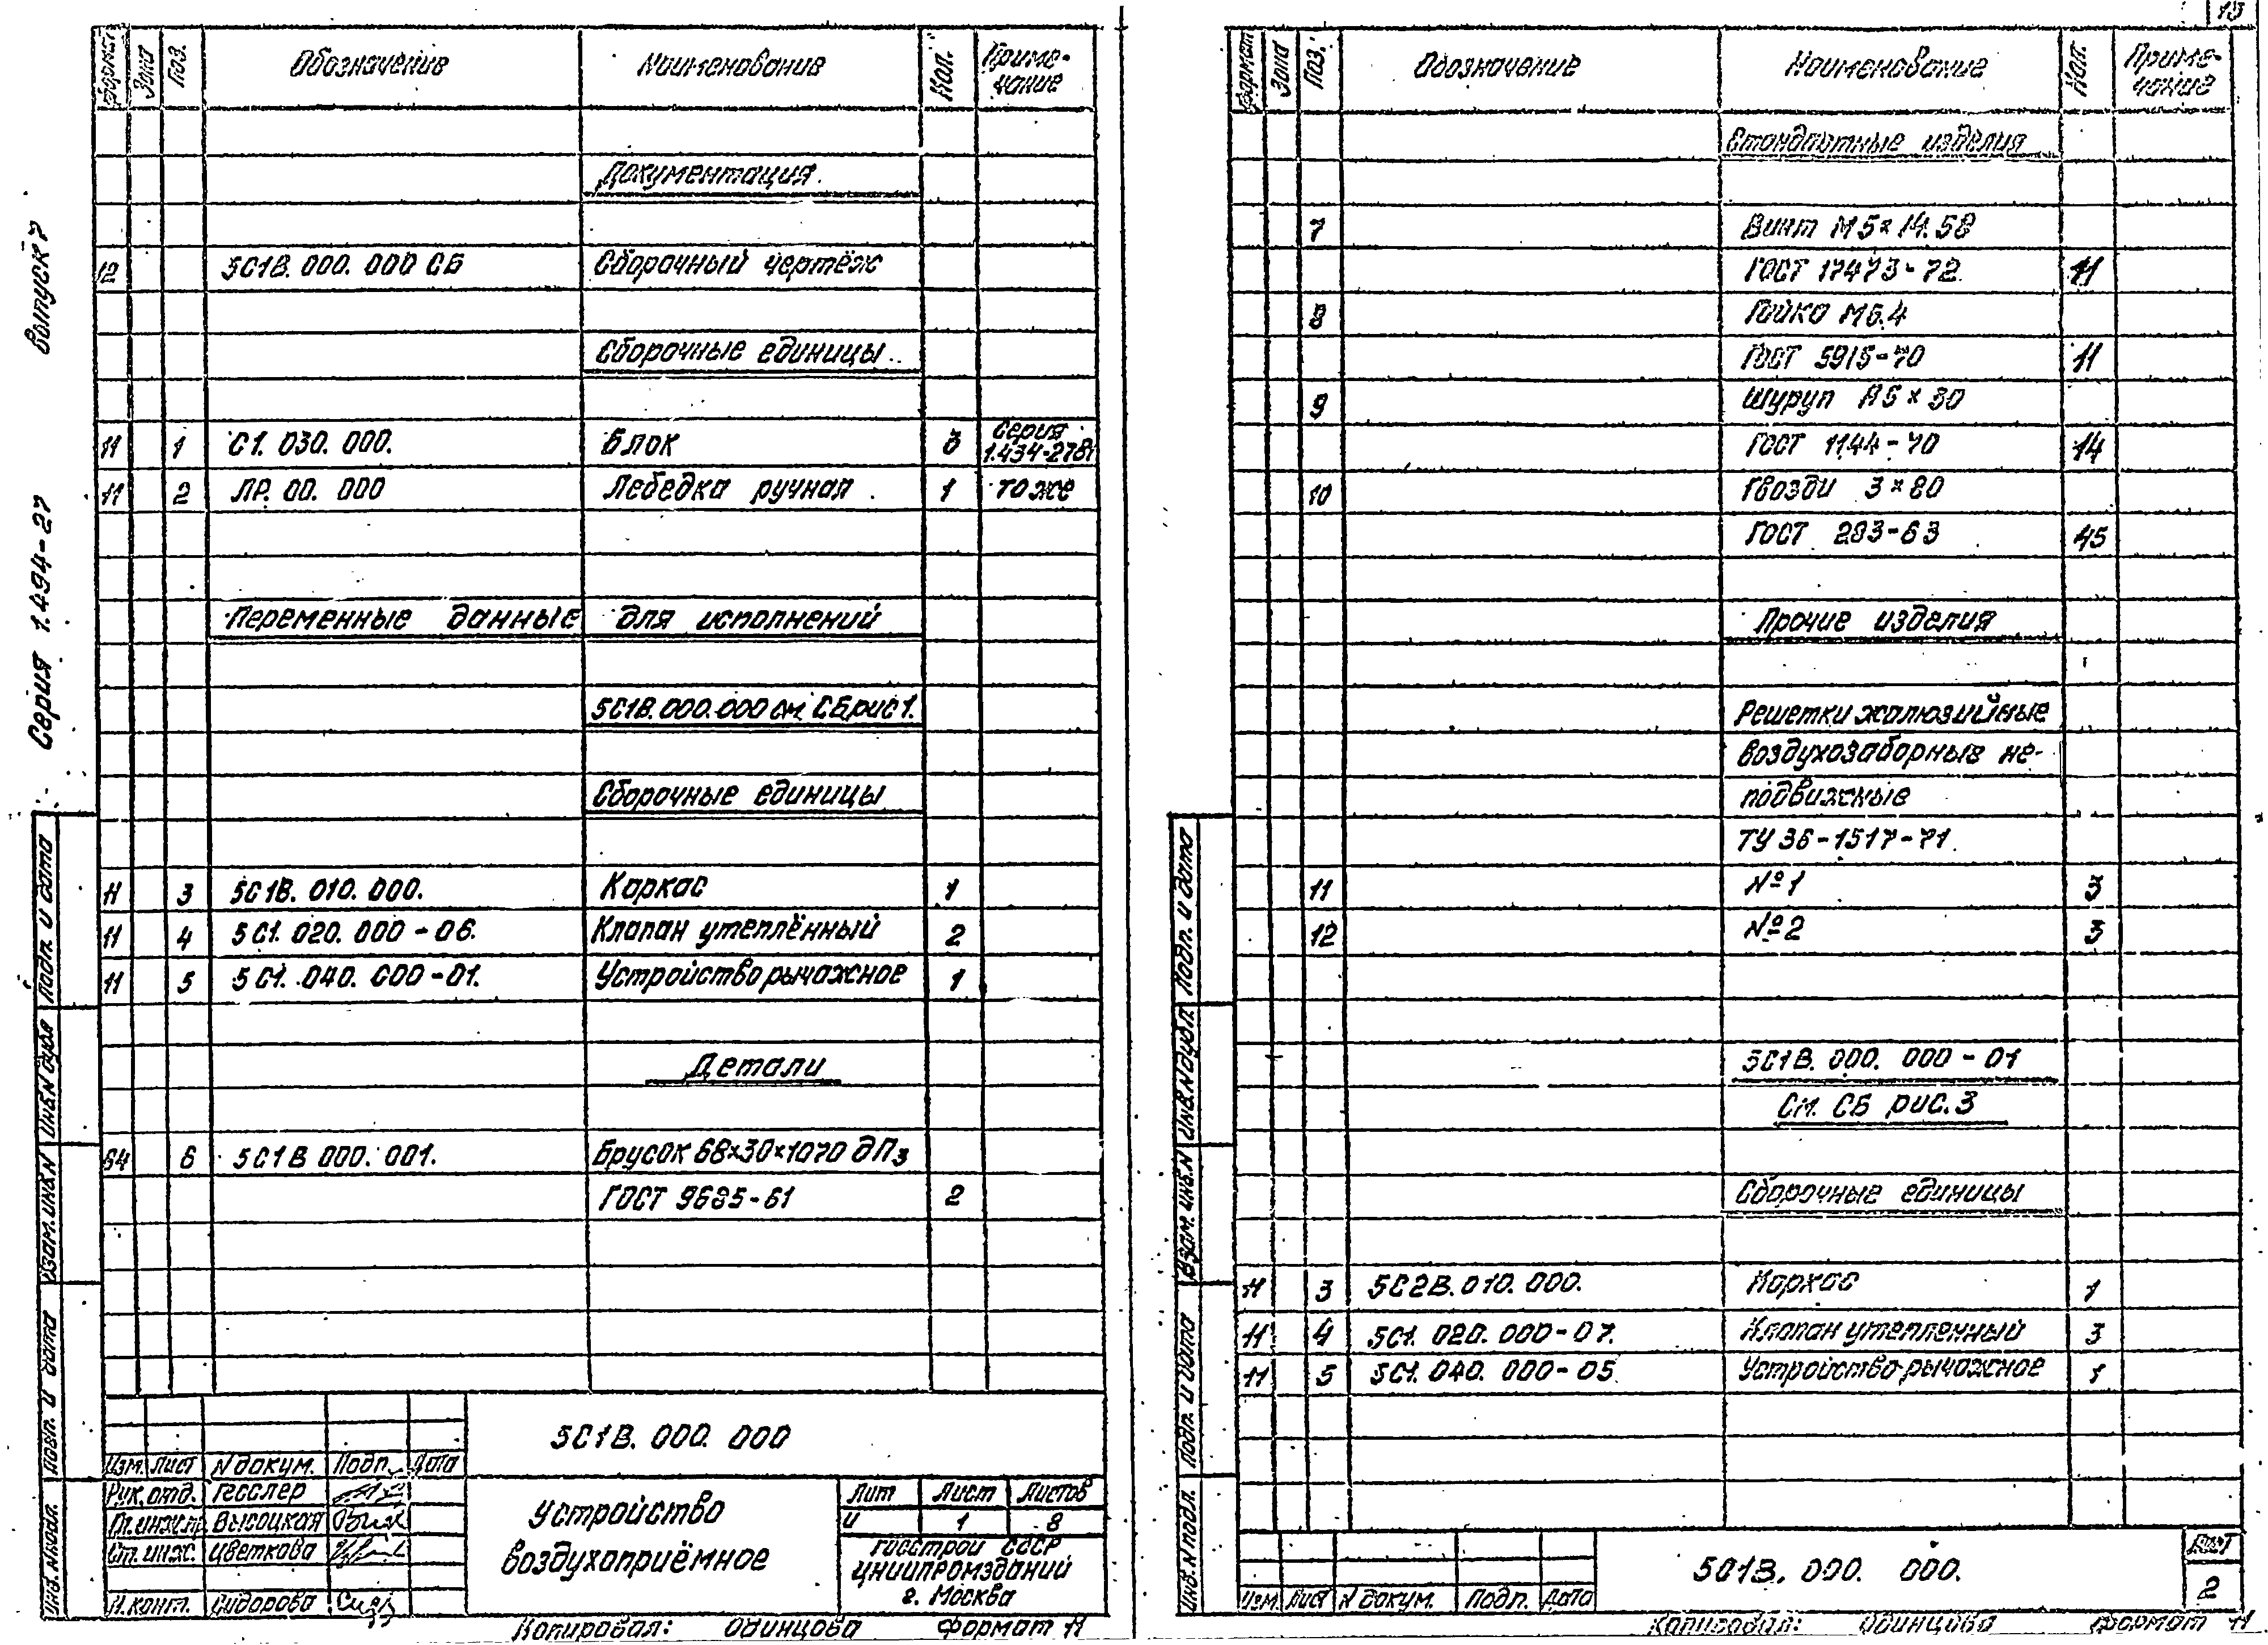 Серия 1.494-27 Выпуск 7
Формат Зона Поз. Обозначение Наименование Кол. Приме-
чание
Документация
12 5С1В.000.000 СБ Сборочный чертёж
Сборочные единицы
11 1 С1.030.000. Блок 3 Серия
11 2 ЛР.00.000 Лебедка ручная 1 то же
Переменные данные для исполнений
5С1В.000.000 см. СБ рис 1.
Сборочные единицы
11 3 5С1В.010.000. Каркас 1
11 4 5С1.020.000-06. Клапан утеплённый 2
11 5 5С1.040.000-01. Устройство рычажное 1
Детали
6 5С1В 000.001. Брусок 68×30×1070 ДП3
ГОСТ 9685-61 2
Подп. и дата
Инв.N дубл.
Взам.инв.N
Подп. и дата
Инв.N подл.
5С1В.000.000
Изм. Лист N докум. Подп. Дата
Рук.отд. Гесслер
Гл.инж.пр. Высоцкая
Ст.инж. Цветкова
Н.конт. Сидорова
Устройство
воздухоприёмное
Лит Лист Листов
И 1 8
Госстрой СССР
ЦНИИПРОМЗДАНИЙ
г. Москва
Копировал: Одинцова Формат 11
13
Формат Зона Поз. Обозначение Наименование Кол. Приме-
чание
Стандартные изделия
7 Винт М5×14.58
ГОСТ 17473-72. 11
8 Гайка М5.4
ГОСТ 5915-70 11
9 Шуруп А5×30
ГОСТ 1144-70 14
10 Гвозди 3×80
ГОСТ 283-63 45
Прочие изделия
Решетки жалюзийные
воздухозаборные не-
подвижные
ТУ 36-1517-71.
11 №1 3
12 №2 3
5С1В.000.000-01
См. СБ рис.3
Сборочные единицы
11 3 5С2В.010.000. Каркас 1
11 4 5С1.020.000-07. Клапан утепленный 3
11 5 5С1.040.000-05. Устройство рычажное 1
Подп. и дата
Инв.N дубл.
Взам.инв.N
Подп. и дата
Инв.N подл.
Изм. Лист N докум. Подп. Дата
5С1В.000.000.
Лист
2
Копировал: Одинцова Формат 11